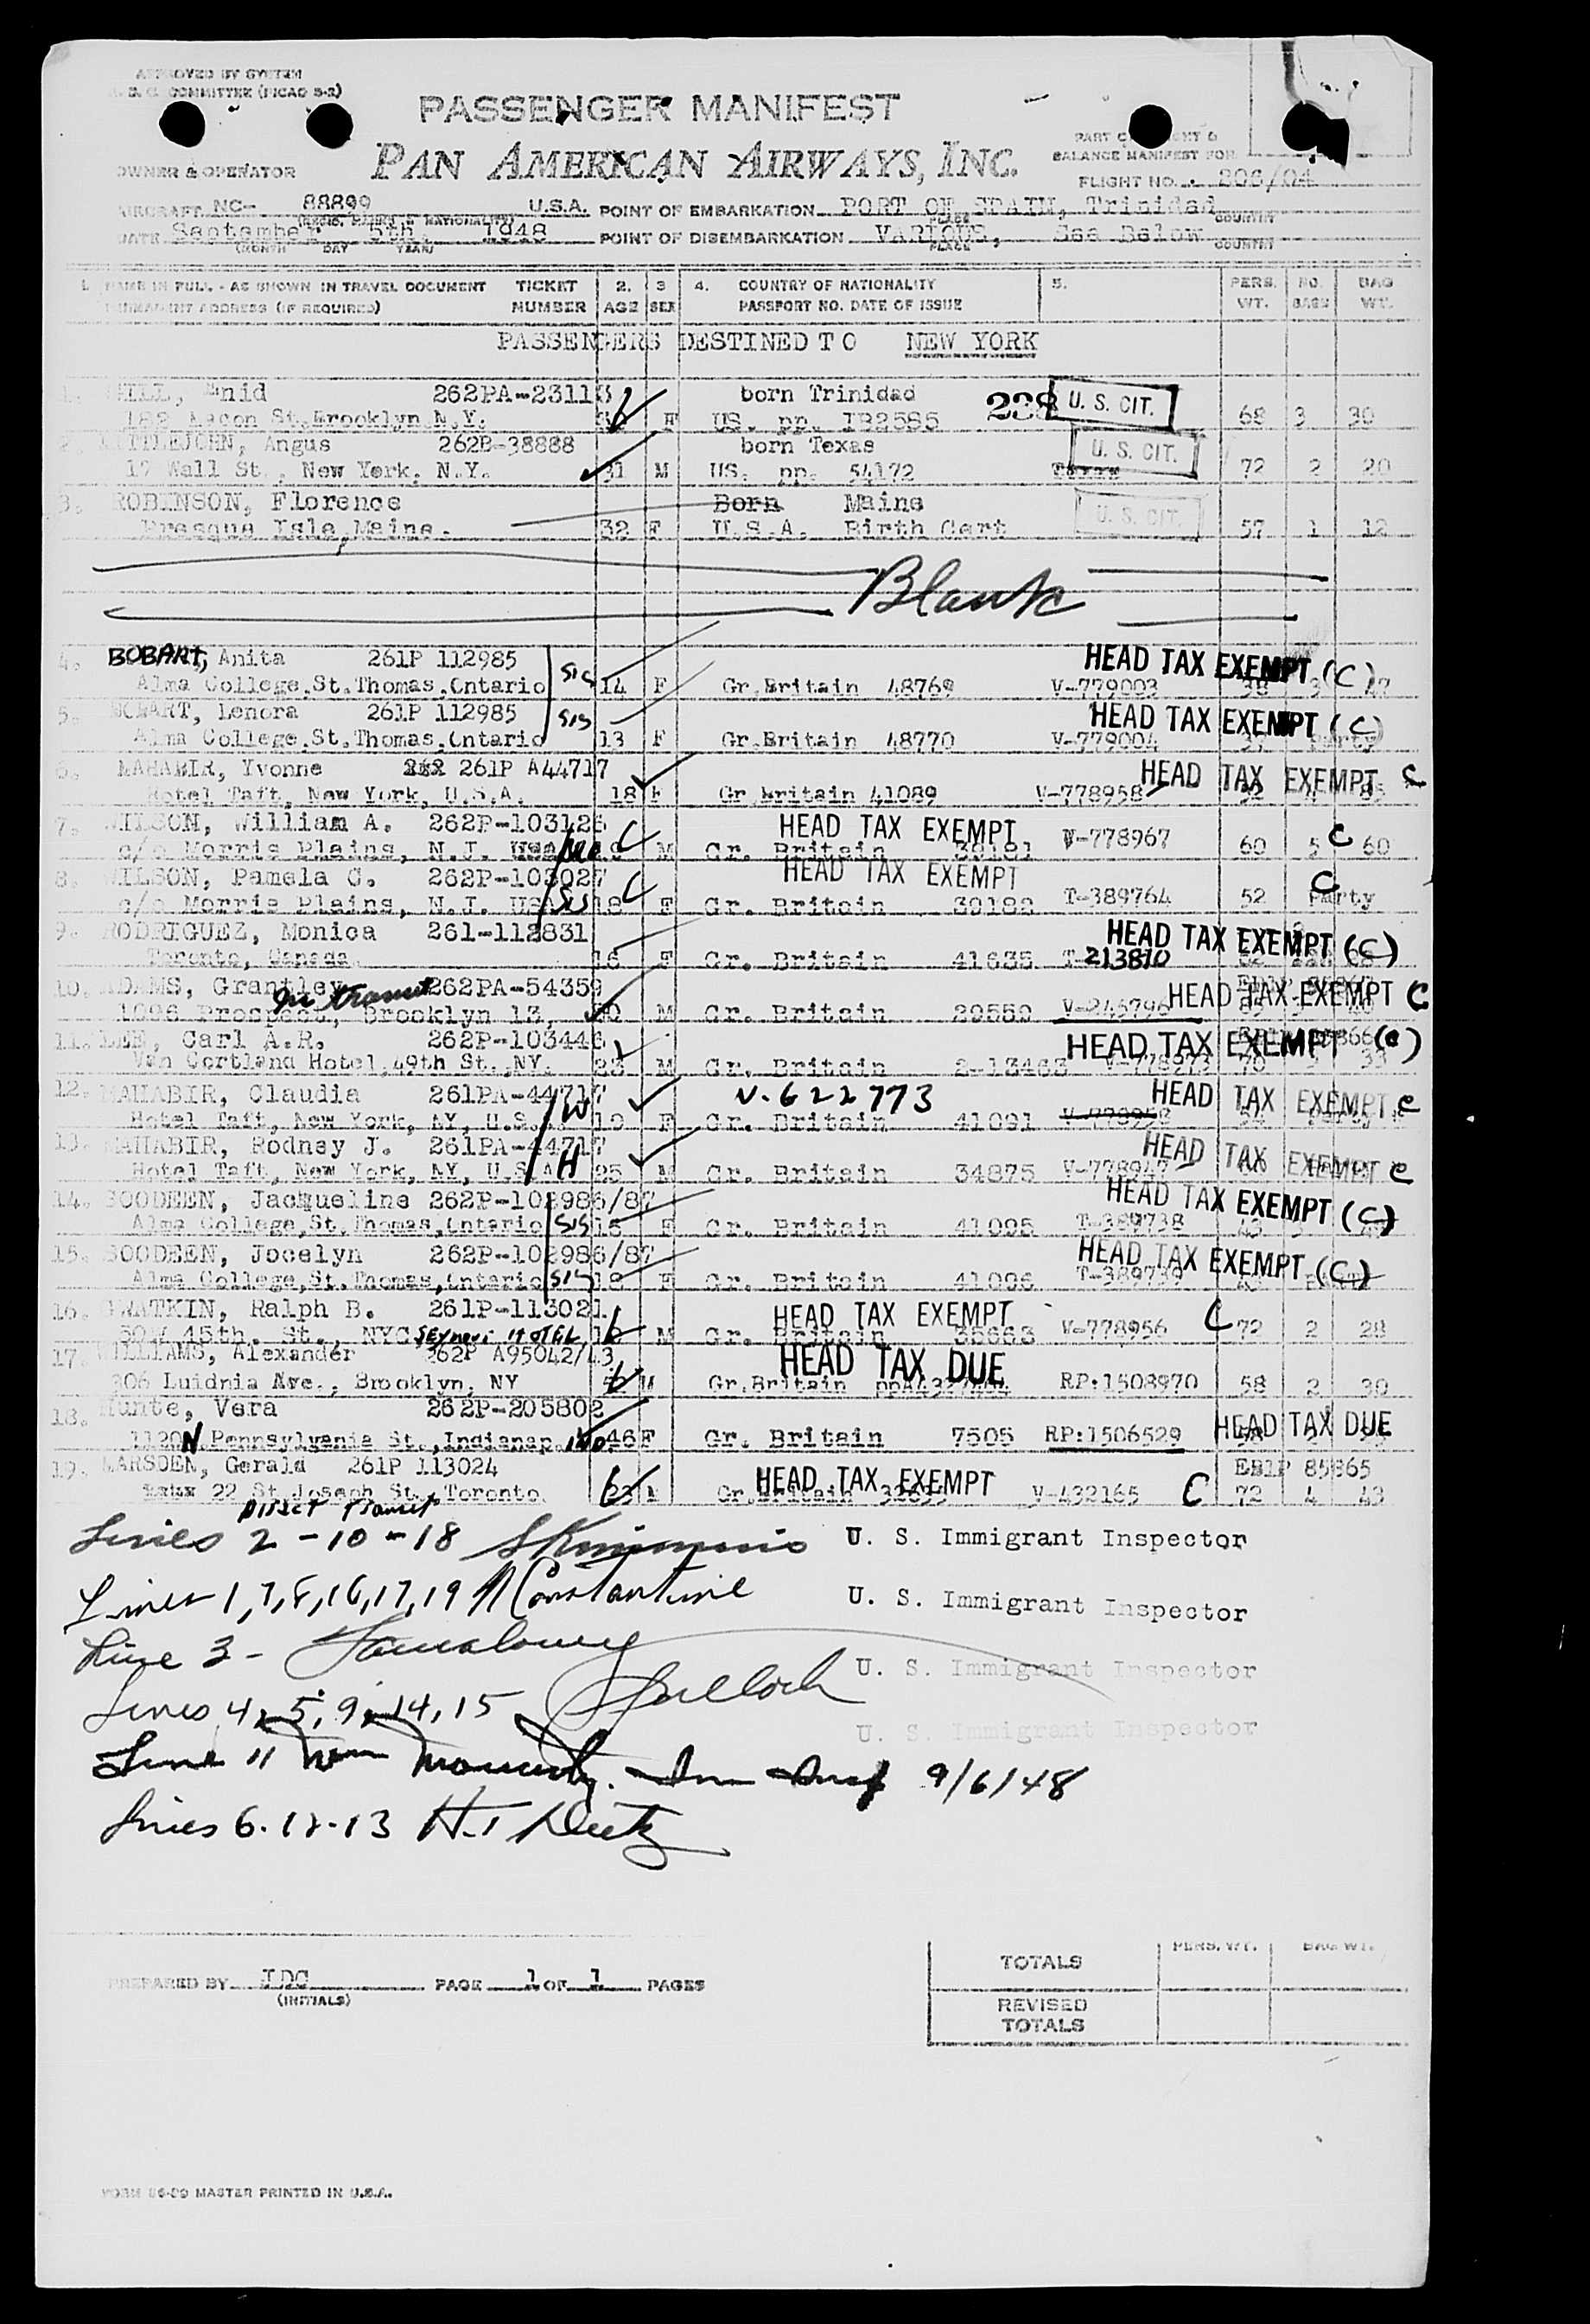 APPROVED BY SYSTEM
COMMITTEE (PICAO 5-2)
PASSENGER MANIFEST
PAN AMERICAN AIRWAYS, INC.
OWNER & OPERATOR
BALANCE MANIFEST FOR
FLIGHT NO. 206/04
AIRCRAFT NC- 88899 U.S.A. POINT OF EMBARKATION PORT OF SPAIN, Trinidad
PLACE COUNTRY
DATE September 5th, 1948 POINT OF DISEMBARKATION VARIOUS, See Below
(MONTH DAY YEAR) PLACE COUNTRY
1. NAME IN FULL - AS SHOWN IN TRAVEL DOCUMENT TICKET 2. 3 4. COUNTRY OF NATIONALITY 5. PERS. NO. BAG
PERMANENT ADDRESS (IF REQUIRED) NUMBER AGE SEX PASSPORT NO. DATE OF ISSUE WT. BAGS WT.
PASSENGERS DESTINED TO NEW YORK
1. Enid 262PA-23113 born Trinidad 238 U. S. CIT.
Macon St. Brooklyn N.Y. F US. pp. 68 3 30
2. LITTLEJOHN, Angus 262P-38888 born Texas U. S. CIT.
17 Wall St., New York, N.Y. 31 M US. pp. 54172 72 2 20
3. ROBINSON, Florence Born Maine U. S. CIT.
Presque Isle, Maine. 32 F U.S.A. Birth Cert 57 1 12
Blank
4. BOBART, Anita 261P 112985 sis HEAD TAX EXEMPT (C)
Alma College, St. Thomas, Ontario 14 F Gr. Britain 48769 V-779003 38 3 47
5. BOBART, Lenora 261P 112985 sis HEAD TAX EXEMPT (C)
Alma College, St. Thomas, Ontario 13 F Gr. Britain 48770 V-779004 Party
6. MAHABIR, Yvonne 261P A44717 HEAD TAX EXEMPT C
Hotel Taft, New York, U.S.A. 18 F Gr. Britain 41089 V-778958
7. WILSON, William A. 262P-103126 C HEAD TAX EXEMPT V-778967 C
c/o Morris Plains, N.J. M Gr. Britain 39181 60 5 60
8. WILSON, Pamela C. 262P-103027 C HEAD TAX EXEMPT C
c/o Morris Plains, N.J. USA Sis 18 F Gr. Britain 39182 T-389764 52 Party
9. RODRIGUEZ, Monica 261-112831 HEAD TAX EXEMPT (C)
Toronto, Canada. 16 F Gr. Britain 41635 T-213810
10. ADAMS, Grantley 262PA-54359 In transit HEAD TAX EXEMPT C
1096 Prospect, Brooklyn 13, M Gr. Britain 29559 V-245796
11. LEE, Carl A.R. 262P-103446 HEAD TAX EXEMPT (C)
Van Cortland Hotel, 49th St., NY. 23 M Gr. Britain 2-13463 V-778973 70
12. MAHABIR, Claudia 261PA-44717 W V-622773 HEAD TAX EXEMPT C
Hotel Taft, New York, NY, U.S. 19 F Gr. Britain 41091
13. MAHABIR, Rodney J. 261PA-44717 HEAD TAX EXEMPT C
Hotel Taft, New York, NY, U.S.A H 25 M Gr. Britain 34875 V-778947
14. BOODEEN, Jacqueline 262P-102986/87 HEAD TAX EXEMPT (C)
Alma College, St. Thomas, Ontario sis 15 F Gr. Britain 41095 T-389738
15. BOODEEN, Jocelyn 262P-102986/87 HEAD TAX EXEMPT (C)
Alma College, St. Thomas, Ontario sis 18 F Gr. Britain 41096 T-389739
16. GWATKIN, Ralph B. 261P-113021 HEAD TAX EXEMPT C
45th. St., NYC HOTEL M Gr. Britain 35663 V-778956 72 2 28
17. WILLIAMS, Alexander 262P A95042/43 HEAD TAX DUE
306 Ave., Brooklyn, NY M Gr. Britain RP:1508970 58 2 30
18. Hunte, Vera 262P-205802 HEAD TAX DUE
1120 N Pennsylvania St., Indianap. IND 46 F Gr. Britain 7505 RP:1506529
19. MARSDEN, Gerald 261P 113024 HEAD TAX EXEMPT EB1P 85865
22 St. Joseph St. Toronto. 23 M Gr. Britain V-432165 C 72 4 43
Direct Transit
Lines 2 - 10 - 18 U. S. Immigrant Inspector
Lines 1,7,8,16,17,19 Constantine U. S. Immigrant Inspector
Line 3 - U. S. Immigrant Inspector
Lines 4, 5, 9, 14, 15
U. S. Immigrant Inspector
Line 11 Imm Insp 9/6/48
Lines 6-12-13
PREPARED BY JDC PAGE 1 OF 1 PAGES
(INITIALS)
PERS. WT. BAG WT.
TOTALS
REVISED
TOTALS
MASTER PRINTED IN U.S.A.